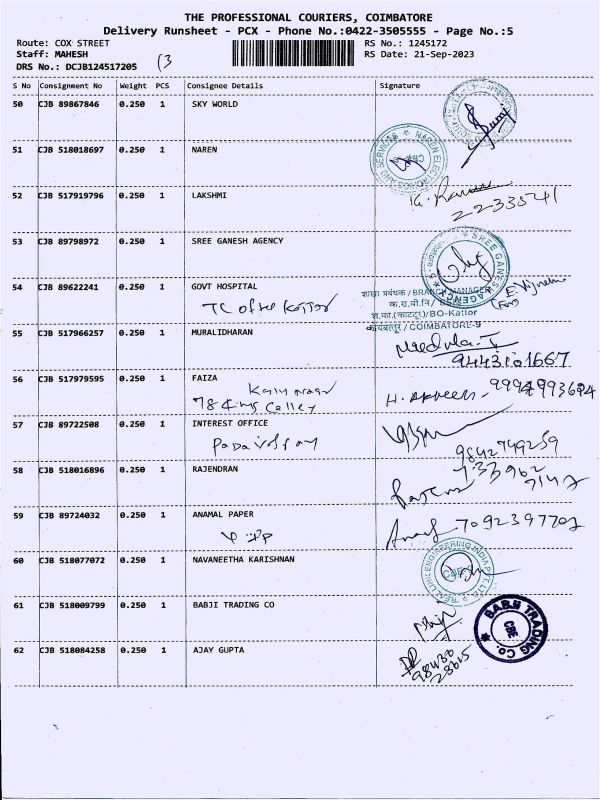 THE PROFESSIONAL COURIERS, COIMBATORE
Delivery Runsheet - PCX - Phone No.:0422-3505555 - Page No.:5
Route: COX STREET RS No.: 1245172
Staff: MAHESH RS Date: 21-Sep-2023
DRS No.: DCJB124517205 (3
S No Consignment No Weight PCS Consignee Details Signature
50 CJB 89867846 0.250 1 SKY WORLD
51 CJB 518018697 0.250 1 NAREN
NAREN ELECTRONICS AND SERVICES
52 CJB 517919796 0.250 1 LAKSHMI
2233541
53 CJB 89798972 0.250 1 SREE GANESH AGENCY
SREE GANESH AGENCY
54 CJB 89622241 0.250 1 GOVT HOSPITAL
शाखा प्रबंधक / BRANCH MANAGER
क.रा.बी.नि/
श.का.(काटटूर)/BO-Kattor
कोयंबतूर / COIMBATORE-9
55 CJB 517966257 0.250 1 MURALIDHARAN
9443101667
56 CJB 517979595 0.250 1 FAIZA
57 CJB 89722508 0.250 1 INTEREST OFFICE
9842749259
58 CJB 518016896 0.250 1 RAJENDRAN
59 CJB 89724032 0.250 1 ANAMAL PAPER
7092397702
60 CJB 518077072 0.250 1 NAVANEETHA KARISHNAN
61 CJB 518009799 0.250 1 BABJI TRADING CO
BABJI TRADING Co.
CBE
62 CJB 518084258 0.250 1 AJAY GUPTA
98430
28615